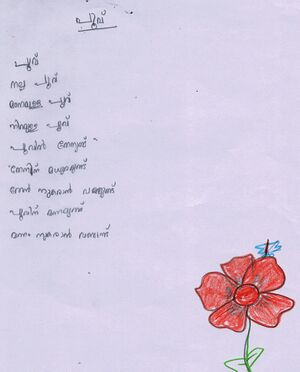 പൂവ്
പൂവ്
നല്ല പൂവ്
മണമുള്ള പൂവ്
നിറമുള്ള പൂവ്
പൂവിൽ തേനുണ്ട്
തേനിന് മധുരമുണ്ട്
തേൻ നുകരാൻ വണ്ടുണ്ട്
പൂവിന് മണമുണ്ട്
മണം നുകരാൻ വണ്ടുണ്ട്